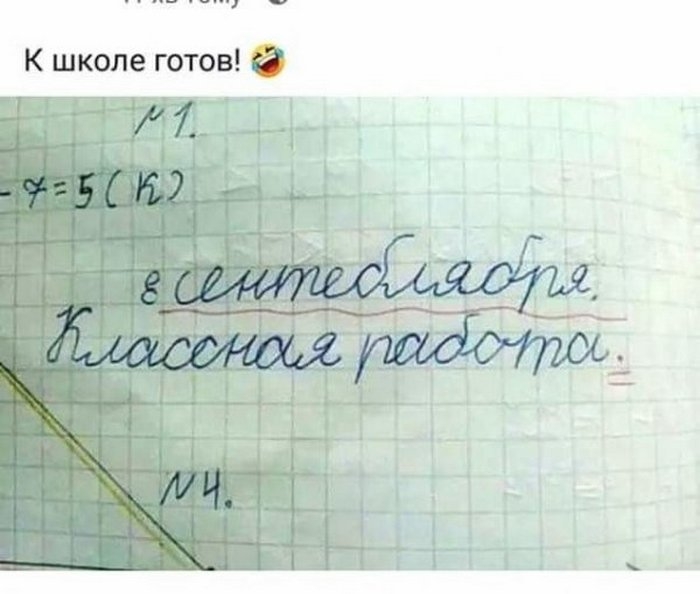 К школе готов! 🤣
N 1.
- 7 = 5 ( К )
8 сентеблября.
Классная работа.
N 4.